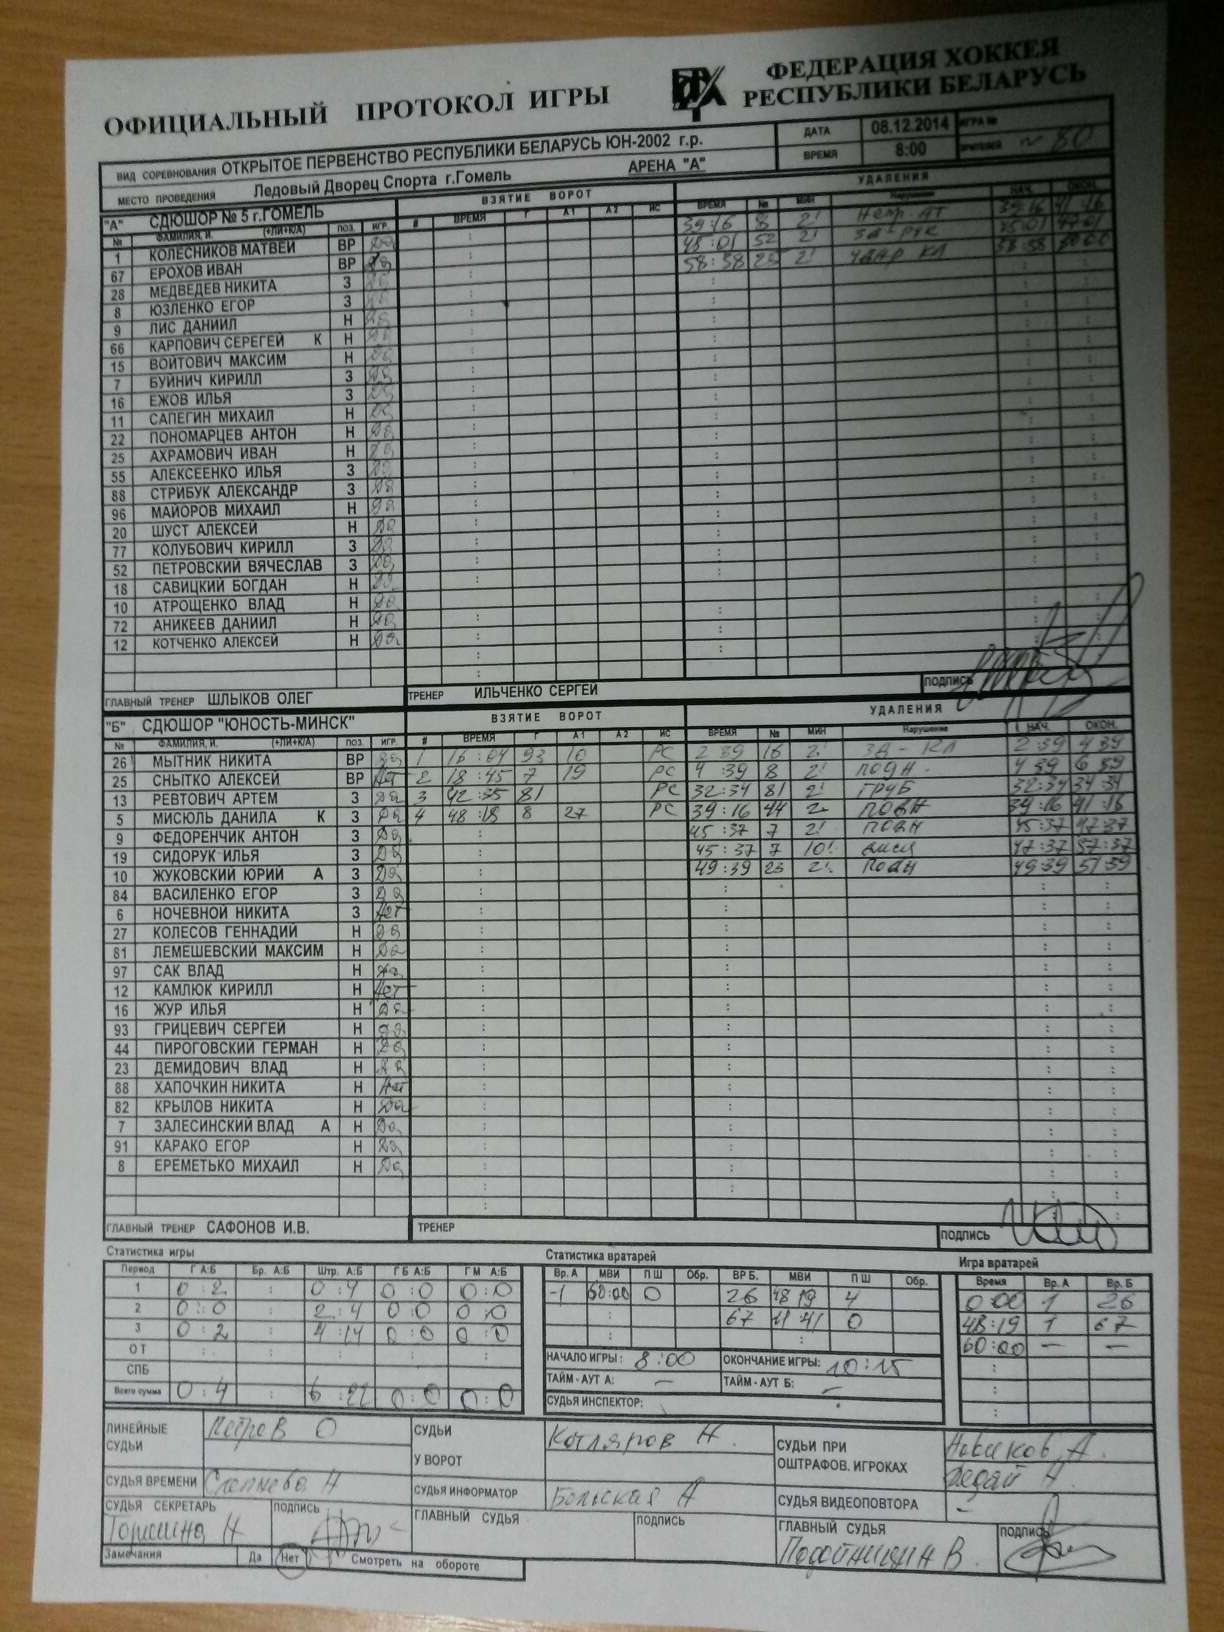 ОФИЦИАЛЬНЫЙ ПРОТОКОЛ ИГРЫ
ФЕДЕРАЦИЯ ХОККЕЯ
РЕСПУБЛИКИ БЕЛАРУСЬ
ВИД СОРЕВНОВАНИЯ ОТКРЫТОЕ ПЕРВЕНСТВО РЕСПУБЛИКИ БЕЛАРУСЬ ЮН-2002 г.р. ДАТА 08.12.2014 ИГРА №
МЕСТО ПРОВЕДЕНИЯ Ледовый Дворец Спорта г.Гомель АРЕНА "А" ВРЕМЯ 8:00 ЗРИТЕЛЕЙ 80
"А" СДЮШОР № 5 г.ГОМЕЛЬ ВЗЯТИЕ ВОРОТ УДАЛЕНИЯ
№ ФАМИЛИЯ, И. (+ЛИ+К/А) ПОЗ. ИГР. # ВРЕМЯ Г А1 А2 ИС ВРЕМЯ № МИН Нарушение НАЧ. ОКОН.
1 КОЛЕСНИКОВ МАТВЕЙ ВР да 39:16 8 2' 39:16 41:16
67 ЕРОХОВ ИВАН ВР да 45:01 52 2' 45:01 47:01
28 МЕДВЕДЕВ НИКИТА З да 58:38 25 2' удар кл 58:38 60:00
8 ЮЗЛЕНКО ЕГОР З да
9 ЛИС ДАНИИЛ Н да
66 КАРПОВИЧ СЕРЕГЕЙ К Н да
15 ВОЙТОВИЧ МАКСИМ Н да
7 БУЙНИЧ КИРИЛЛ З да
16 ЕЖОВ ИЛЬЯ З да
11 САПЕГИН МИХАИЛ Н да
22 ПОНОМАРЦЕВ АНТОН Н да
25 АХРАМОВИЧ ИВАН Н да
55 АЛЕКСЕЕНКО ИЛЬЯ З да
88 СТРИБУК АЛЕКСАНДР З да
96 МАЙОРОВ МИХАИЛ Н да
20 ШУСТ АЛЕКСЕЙ Н да
77 КОЛУБОВИЧ КИРИЛЛ З да
52 ПЕТРОВСКИЙ ВЯЧЕСЛАВ З да
18 САВИЦКИЙ БОГДАН Н да
10 АТРОЩЕНКО ВЛАД Н да
72 АНИКЕЕВ ДАНИИЛ Н да
12 КОТЧЕНКО АЛЕКСЕЙ Н да
ГЛАВНЫЙ ТРЕНЕР ШЛЫКОВ ОЛЕГ ТРЕНЕР ИЛЬЧЕНКО СЕРГЕЙ ПОДПИСЬ
"Б" СДЮШОР "ЮНОСТЬ-МИНСК" ВЗЯТИЕ ВОРОТ УДАЛЕНИЯ
№ ФАМИЛИЯ, И. (+ЛИ+К/А) ПОЗ ИГР. # ВРЕМЯ Г А1 А2 ИС ВРЕМЯ № МИН Нарушение НАЧ. ОКОН.
26 МЫТНИК НИКИТА ВР да 1 16:04 93 10 РС 2 39 16 2' зд-кл 2:39 4:39
25 СНЫТКО АЛЕКСЕЙ ВР нет 2 18:45 7 19 РС 4:39 8 2' подн. 4 39 6 39
13 РЕВТОВИЧ АРТЕМ З да 3 42:35 81 РС 32:34 81 2' груб 32:34 34:34
5 МИСЮЛЬ ДАНИЛА К З да 4 48:18 8 27 РС 39:16 44 2' подн 39:16 41:16
9 ФЕДОРЕНЧИК АНТОН З да 45:37 7 2' подн 45:37 47:37
19 СИДОРУК ИЛЬЯ З да 45:37 7 10' 47:37 57:37
10 ЖУКОВСКИЙ ЮРИЙ А З да 49:39 23 2' подн 49:39 51:39
84 ВАСИЛЕНКО ЕГОР З да
6 НОЧЕВНОЙ НИКИТА З нет
27 КОЛЕСОВ ГЕННАДИЙ Н да
81 ЛЕМЕШЕВСКИЙ МАКСИМ Н да
97 САК ВЛАД Н да
12 КАМЛЮК КИРИЛЛ Н нет
16 ЖУР ИЛЬЯ Н да
93 ГРИЦЕВИЧ СЕРГЕЙ Н да
44 ПИРОГОВСКИЙ ГЕРМАН Н да
23 ДЕМИДОВИЧ ВЛАД Н да
88 ХАПОЧКИН НИКИТА Н нет
82 КРЫЛОВ НИКИТА Н да
7 ЗАЛЕСИНСКИЙ ВЛАД А Н да
91 КАРАКО ЕГОР Н да
8 ЕРЕМЕТЬКО МИХАИЛ Н да
ГЛАВНЫЙ ТРЕНЕР САФОНОВ И.В. ТРЕНЕР ПОДПИСЬ
Статистика игры Статистика вратарей Игра вратарей
Период Г А:Б Бр. А:Б Штр. А:Б Г Б А:Б Г М А:Б Вр. А МВИ П Ш Обр. ВР Б. МВИ П Ш Обр. Время Вр. А Вр. Б
1 0:2 : 0:4 0:0 0:0 -1 60:00 0 26 48 19 4 0:00 1 26
2 0:0 : 2:4 0:0 0:0 67 11 41 0 48:19 1 67
3 0:2 : 4:14 0:0 0:0 60:00 — —
О Т
СПБ НАЧАЛО ИГРЫ: 8:00 ОКОНЧАНИЕ ИГРЫ: 10:15
Всего сумма 0:4 : 6:22 0:0 0:0 ТАЙМ - АУТ А: — ТАЙМ - АУТ Б: —
СУДЬЯ ИНСПЕКТОР:
ЛИНЕЙНЫЕ СУДЬИ Петров О СУДЬИ У ВОРОТ Котляров Н. СУДЬИ ПРИ ОШТРАФОВ. ИГРОКАХ Новиков А.
Федай Н
СУДЬЯ ВРЕМЕНИ СУДЬЯ ИНФОРМАТОР Вольская А СУДЬЯ ВИДЕОПОВТОРА —
СУДЬЯ СЕКРЕТАРЬ ПОДПИСЬ ГЛАВНЫЙ СУДЬЯ ПОДПИСЬ ГЛАВНЫЙ СУДЬЯ ПОДПИСЬ
Замечания Да Нет Смотреть на обороте